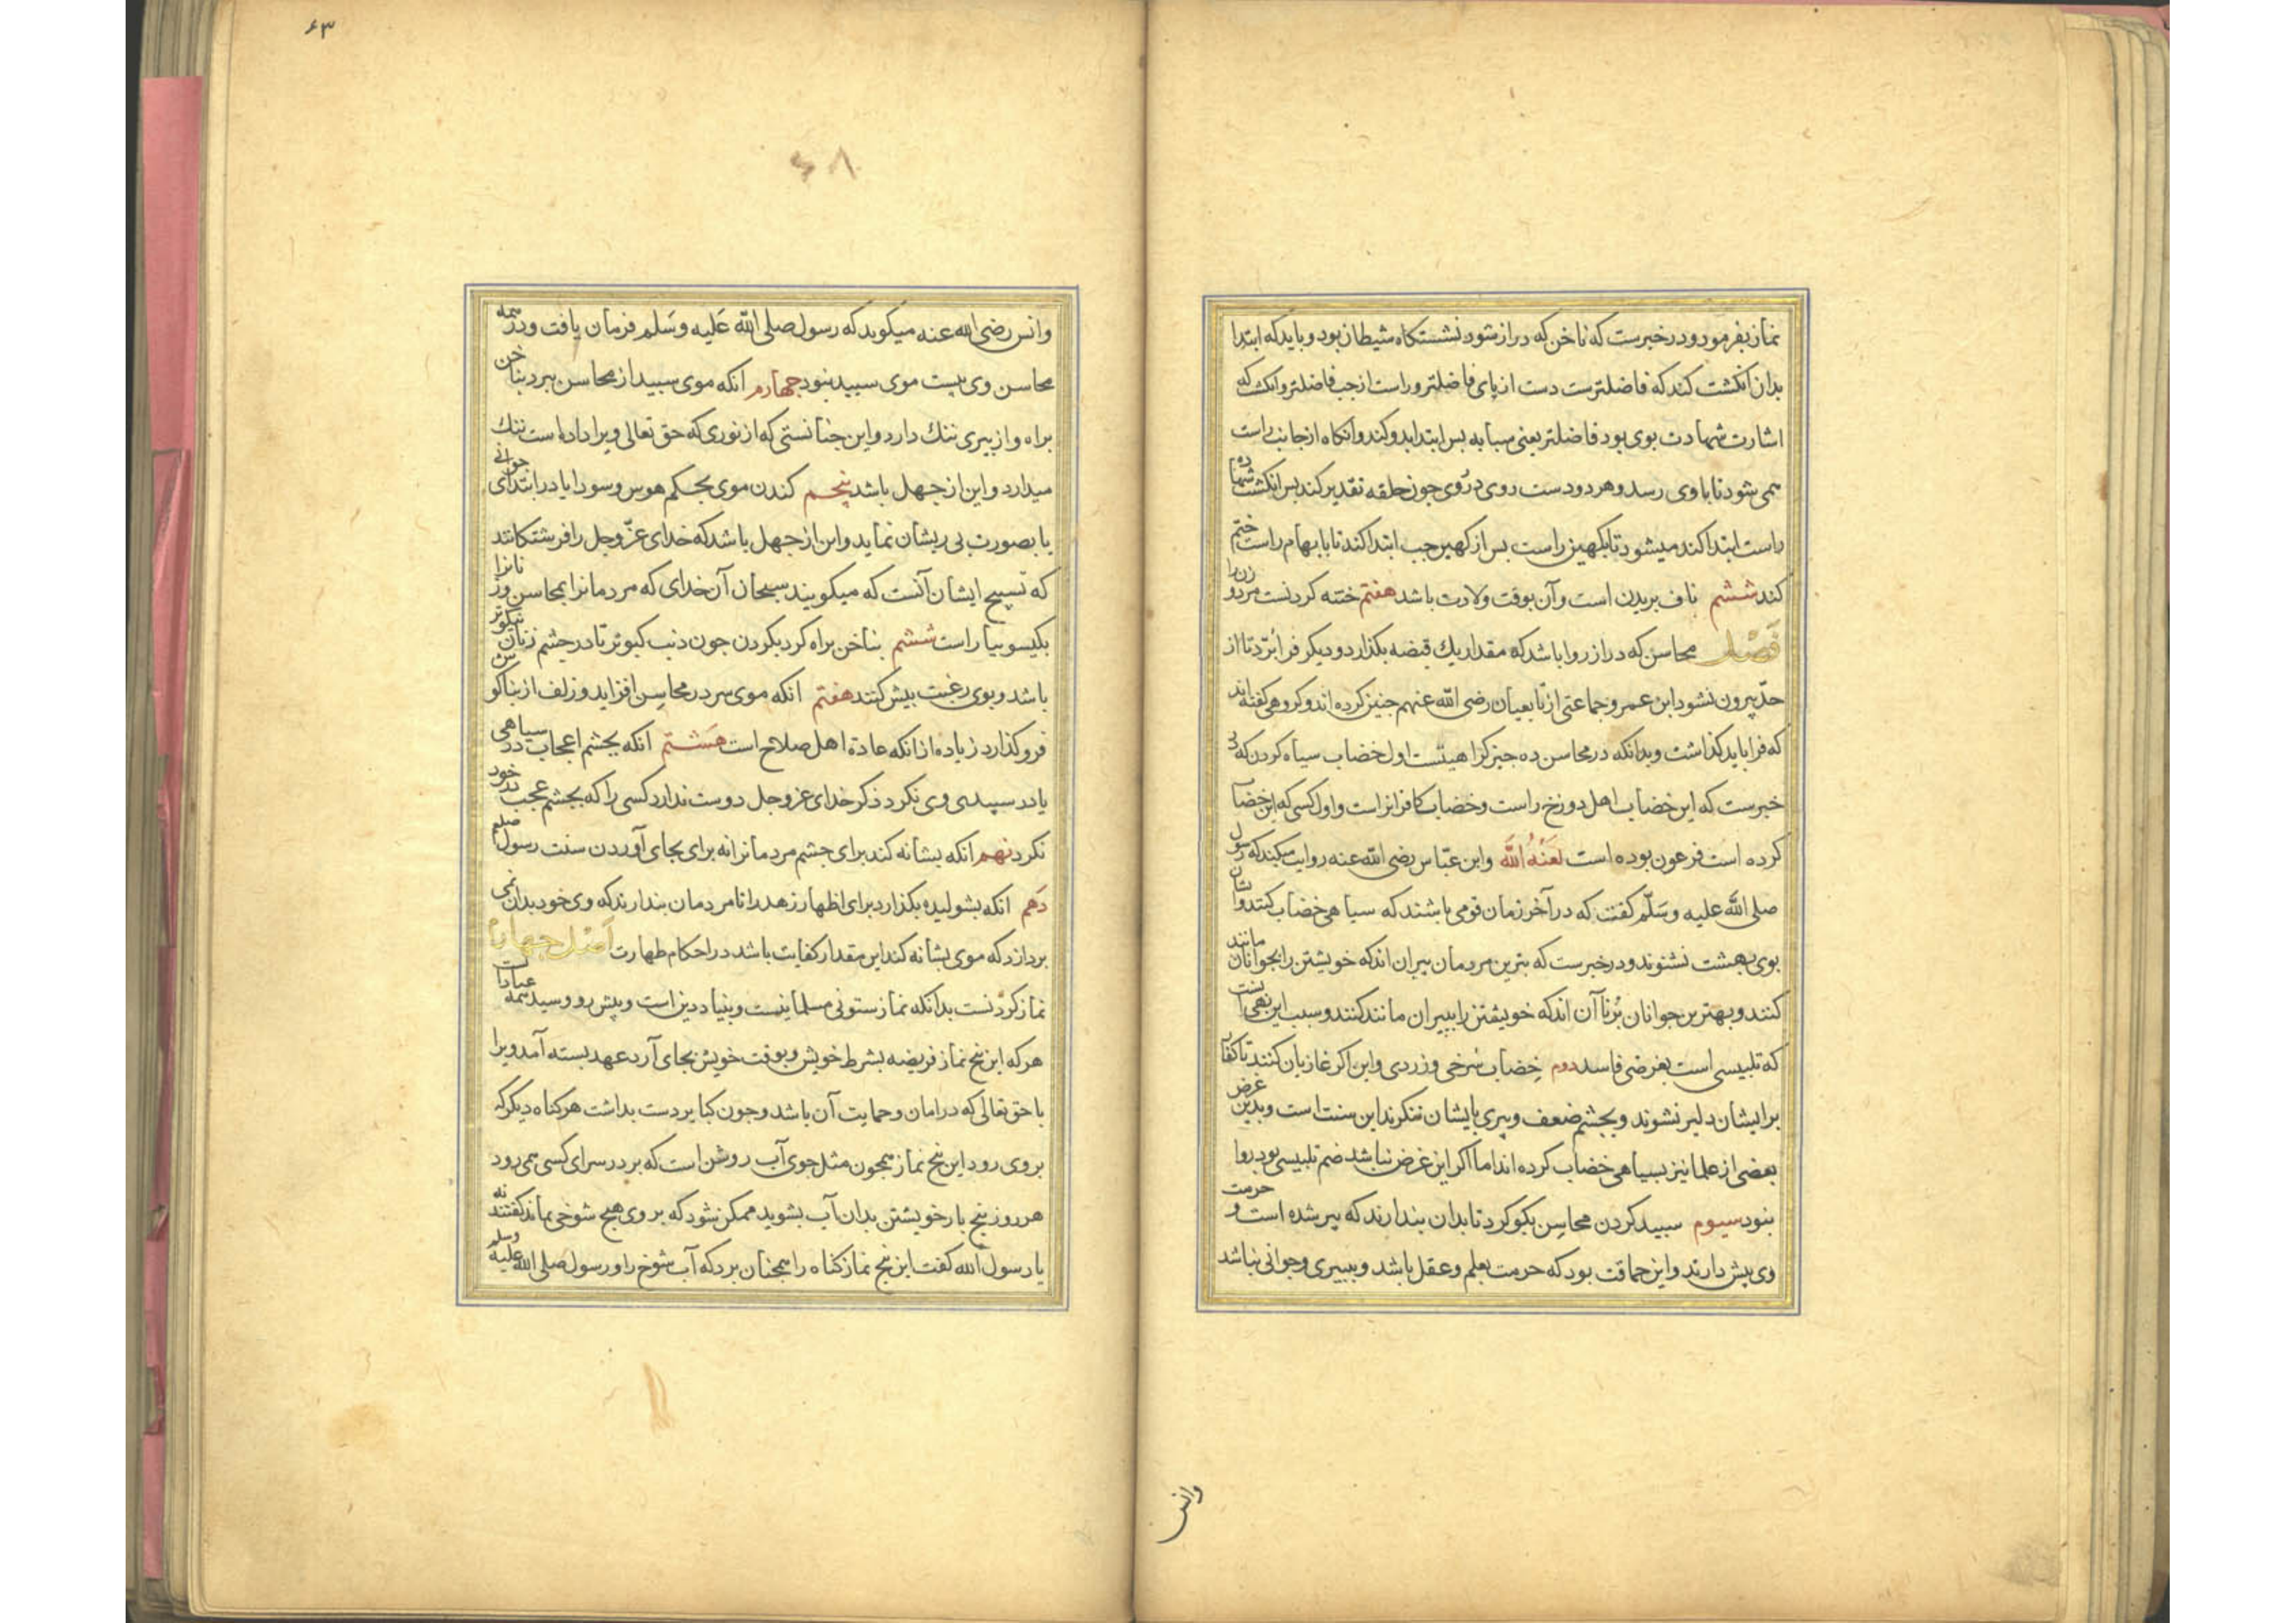 نماز بفرمود و در خبرست که ناخن که دراز شود نشستکاه شیطان بود و باید که ابتدا
بدان انکشت کند که فاضلترست دست از پای فاضلتر و راست از جب فاضلتر و انک که
اشارت شهادت بوی بود فاضلتر یعنی مسبابه بس ابتدا بدو کند و انکاه از جانب راست
همی شود تا باوی رسد و هر دو دست روی در روی جون حلقه تقدیر کند بس انکشت شهاده
راست ابتدا کند میشود تا بکهین راست بس از کهین جب ابتدا کند تا بابهام راست ختم
کند ششم ناف بریدن است و آن بوقت ولادت باشد هفتم ختنه کردنست مرد و زن را
فصل محاسن که دراز روا باشد که مقدار یك قبضه بکذارد و دیکر فرا برد تا از
حد بیرون نشود ابن عمر و جماعتی از تابعیان رضی الله عنهم جنین کرده اند و کروهی کفته اند
که فرا باید کذاشت و بدانکه در محاسن ده جیز کراهیتست اول خضاب سیاه کردن که در
خبرست که این خضاب اهل دوزخ راست و خضاب کافرانست و اول کسی که این خضاب
کرده است فرعون بوده است لعنه الله وابن عباس رضی الله عنه روایت میکند که رسول
صلی الله علیه وسلم کفت که در آخر زمان قومی باشند که سیاهی خضاب کنند و ایشان
بوی بهشت نشنوند و در خبرست که بترین مردمان بیران اند که خویشتن را بجوانان مانند
کنند و بهترین جوانان برنا آن اند که خویشتن را ببیران مانند کنند و سبب این نهی آنست
که تلبیسی است بغرضی فاسد دوم خضاب سرخی و زردی و این اکر غازیان کنند تا کفار
بر ایشان دلیر نشوند و بجشم ضعف و پیری بایشان ننکرند این سنت است و بدین غرض
بعضی از علما نیز بسیاهی خضاب کرده اند اما اکر این غرض نباشد ضم تلبیسی بود روا
نبود سیوم سبید کردن محاسن بکوکرد تا بدان بندارند که پیر شده است و حرمت
وی بیش دارند و این حماقت بود که حرمت بعلم و عقل باشد و ببیری و جوانی نباشد
وانس
۶۳
۶۸
وانس رضی الله عنه میکوید که رسول صلی الله علیه وسلم فرمان یافت و در همه
محاسن وی بیست موی سبید نبود جهارم انکه موی سبید از محاسن ببرد بناخن
براه و از پیری ننك دارد و این جنانستی که از نوری که حق تعالی ویرا داده است ننك
میدارد و این از جهل باشد بنجم کندن موی بحکم هوس و سودا یا در ابتدای جوانی
یا بصورت بی ریشان نماید و این از جهل باشد که خدای عز وجل را فرشتکانند
که تسبیح ایشان آنست که میکویند سبحان آن خدای که مردمانرا بمحاسن و زنانرا
بکیسو بیاراست ششم بناخن براه کرد بکردن جون دنب کبوتر تا در جشم زنان نیکوتر
باشد و بوی رغبت بیش کنند هفتم انکه موی سر در محاسن افزاید و زلف از بناکوش
فرو کذارد زیاده از انکه عادة اهل صلاح است هشتم انکه بجشم اعجاب در سیاهی
یا در سپیدی وی نکرد ذکر خدای عزوجل دوست ندارد کسی را که بجشم عجب در خود
نکرد نهم انکه بشانه کند برای جشم مردمان نه برای بجای آوردن سنت رسول صلعم
دهم انکه بشولیده بکذارد برای اظهار زهد را تا مردمان بندارند که وی خود بدان نمی
بردازد که موی بشانه کند این مقدار کفایت باشد در احکام طهارت اصل جهارم
نماز کردنست بدانکه نماز ستونی مسلمانیست و بنیاد دین است و پیش رو و سید همه عباداتست
هر که این بنج نماز فریضه بشرط خویش و بوقت خویش بجای آرد عهد بسته آمد ویرا
با حق تعالی که در امان و حمایت آن باشد و جون کبایر دست بداشت هر کناه دیکر که
بر وی رود این بنج نماز همجون مثل جوی آب روشن است که بر در سرای کسی همی رود
هر روز بنج بار خویشتن بدان آب بشوید ممکن شود که بر وی هیج شوخی بماند کفتند نه
یا رسول الله کفت این بنج نماز کناه را همجنان برد که آب شوخ را و رسول صلی الله علیه وسلم